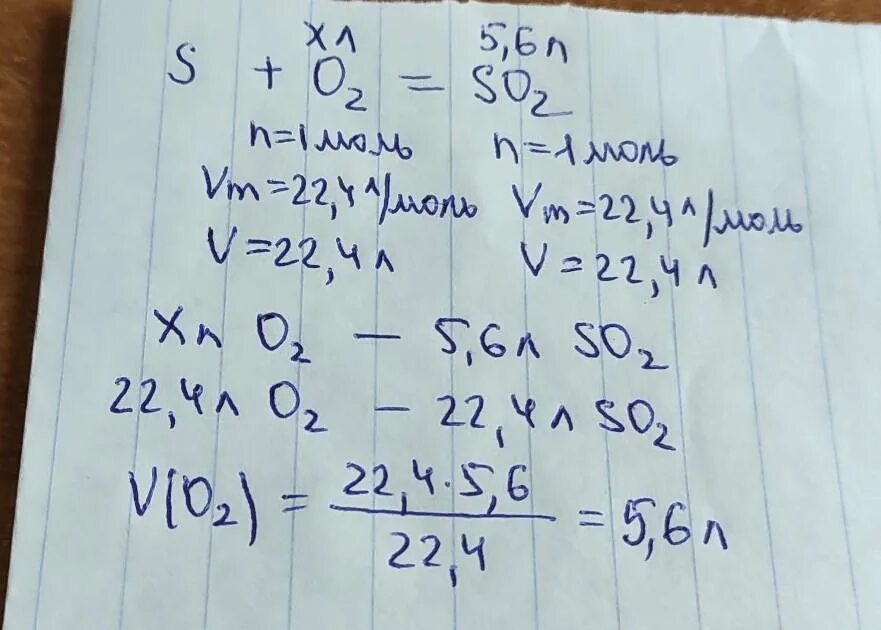 x л 5,6 л
S + O₂ = SO₂
n=1 моль n=1 моль
Vm=22,4 л/моль Vm=22,4 л/моль
V=22,4 л V=22,4 л
x л O₂ — 5,6 л SO₂
22,4 л O₂ — 22,4 л SO₂
V(O₂) = 22,4·5,6 / 22,4 = 5,6 л